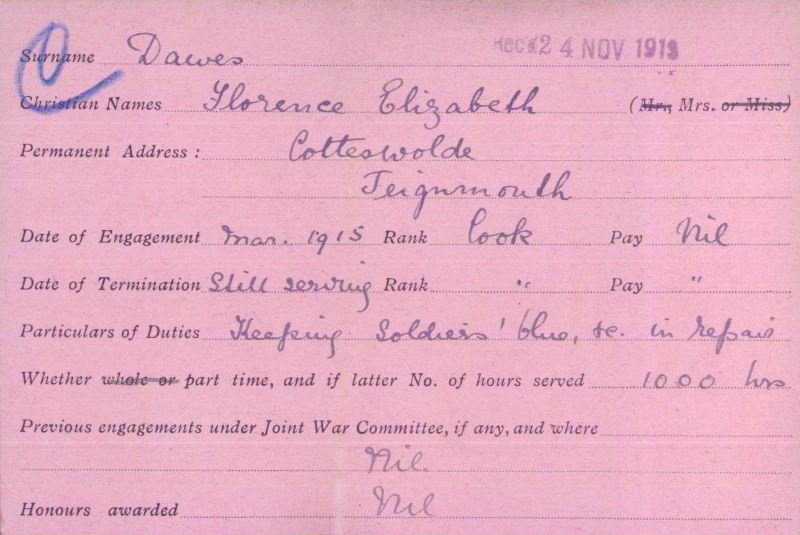 Surname Dawes Rec'd 24 NOV 1919
Christian Names Florence Elizabeth (Mr., Mrs. or Miss)
Permanent Address : Cotteswolde
Teignmouth
Date of Engagement Mar. 1915 Rank Cook Pay Nil
Date of Termination Still serving Rank " Pay "
Particulars of Duties Keeping Soldiers' blue, &c. in repair
Whether whole or part time, and if latter No. of hours served 1000 hrs
Previous engagements under Joint War Committee, if any, and where
Nil.
Honours awarded Nil